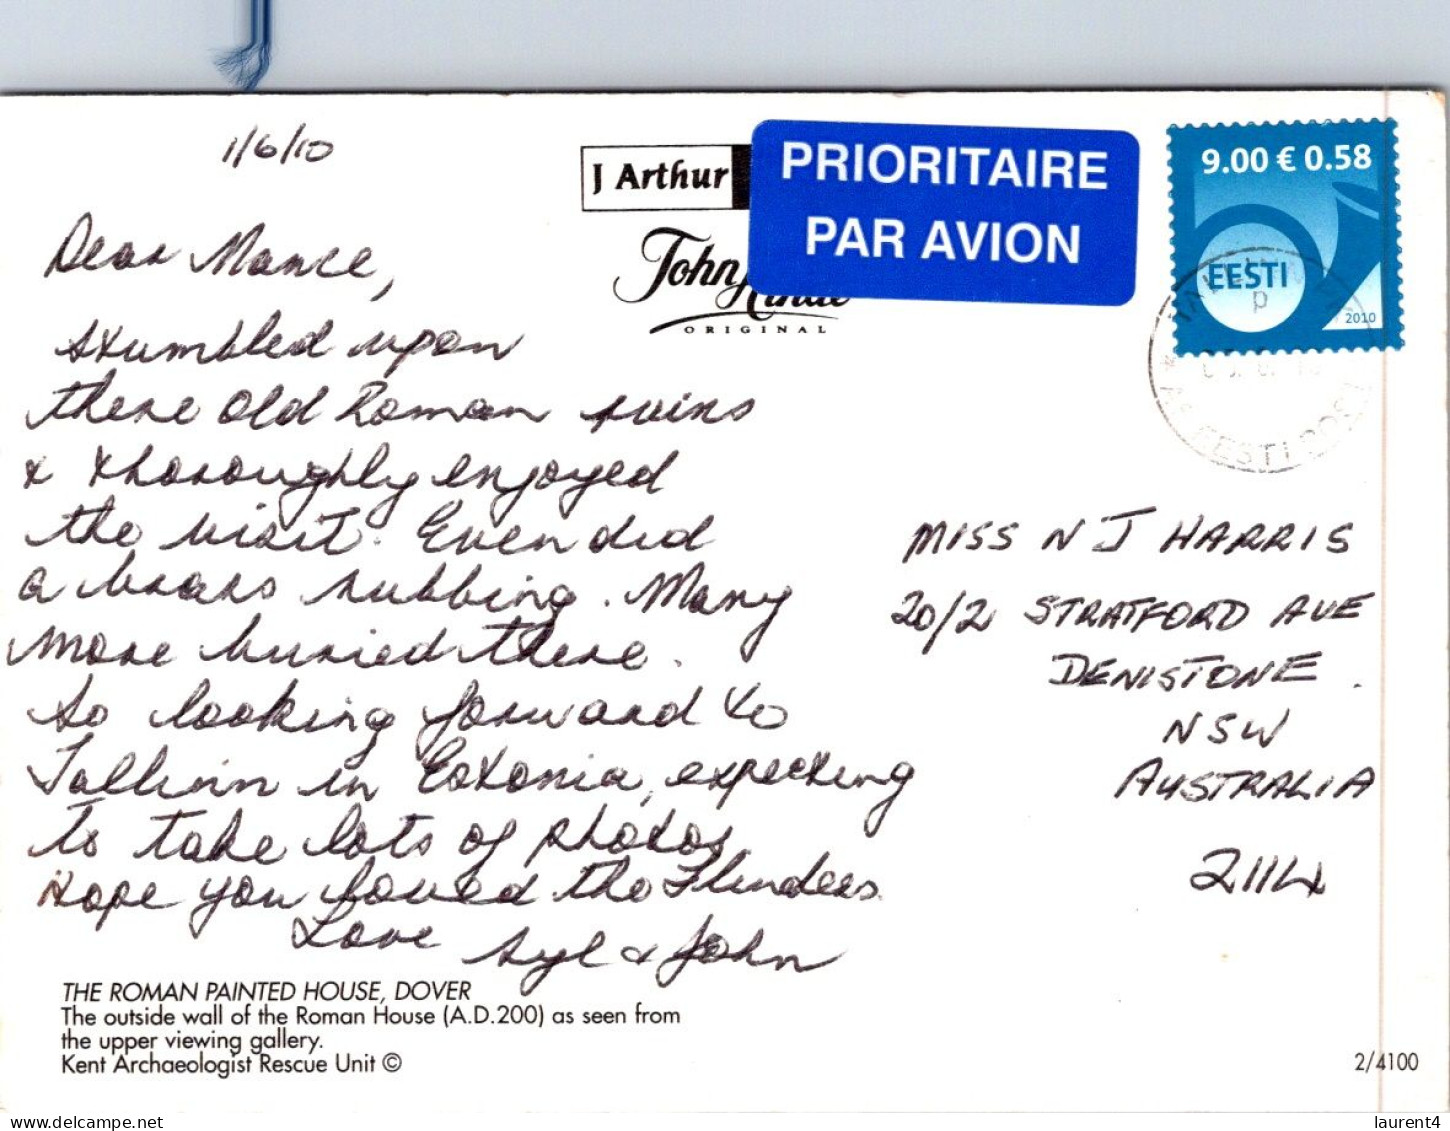 1/6/10
J Arthur
PRIORITAIRE
PAR AVION
John Hinde
ORIGINAL
9.00 € 0.58
EESTI
2010
EESTI POST
Dear Mance,
stumbled upon
these old Roman ruins
& thoroughly enjoyed
the visit. Even did
a brass rubbing. Many
more buried there.
So looking forward to
Tallinn in Estonia, expecting
to take lots of photos.
Hope you loved the Flinders.
Love Syl & John
MISS N J HARRIS
20/2 STRATFORD AVE
DENISTONE.
NSW
AUSTRALIA
2114
THE ROMAN PAINTED HOUSE, DOVER
The outside wall of the Roman House (A.D.200) as seen from
the upper viewing gallery.
Kent Archaeologist Rescue Unit ©
2/4100
delcampe.net
laurent4